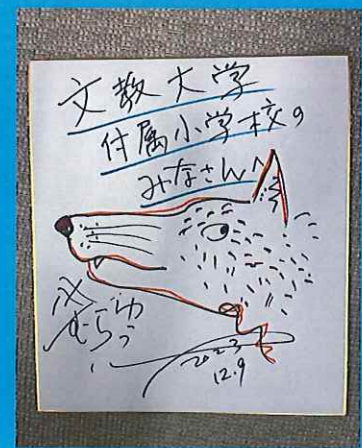 文教大学
付属小学校の
みなさんへ
2023
12.9